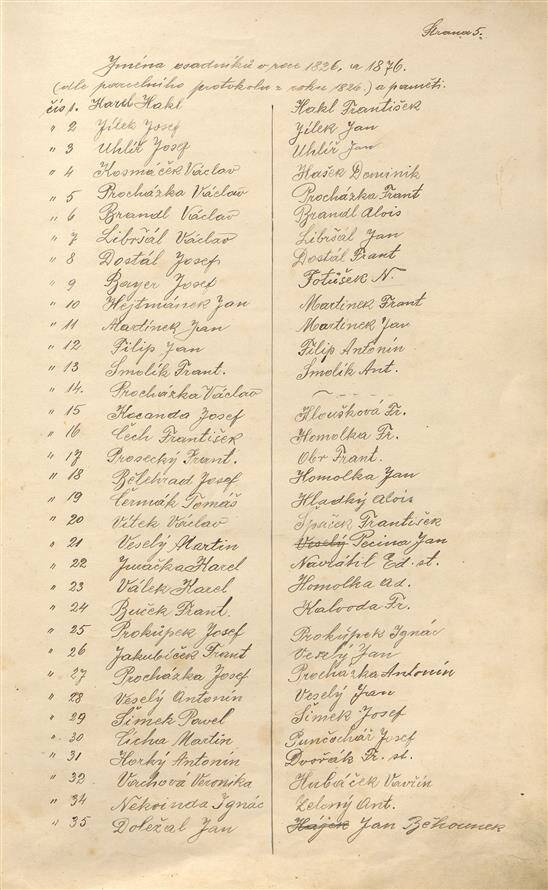 Strana 5.
Jména osadníků v roce 1826, a 1876.
(dle parcelního protokolu z roku 1826.) a paměti.
čís 1. Karel Hakl Hakl František
" 2 Jílek Josef Jílek Jan
" 3 Uhlíř Josef Uhlíř Jan
" 4 Kosmáček Václav Hašek Dominik
" 5 Procházka Václav Procházka Frant
" 6 Brandl Václav Brandl Alois
" 7 Libršál Václav Libršál Jan
" 8 Dostál Josef Dostál Frant
" 9 Bayer Josef Fotůšek N.
" 10 Hejtmánek Jan Martinek Frant
" 11 Martinek Jan Martinek Jan
" 12 Filip Jan Filip Antonín
" 13 Smolík Frant. Smolík Ant.
" 14. Procházka Václav
" 15 Kocanda Josef Kloušková Fr.
" 16 Čech František Homolka Fr.
" 17 Prosecký Frant. Obr Frant.
" 18 Bělehrad Josef Homolka Jan
" 19 Čermák Tomáš Hladký Alois
" 20 Vítek Václav Špaček František
" 21 Veselý Martin Veselý Pecina Jan
" 22 Karel Navrátil Ed. st.
" 23 Válek Karel Homolka ad.
" 24 Buček Frant. Kalvoda Fr.
" 25 Prokůpek Josef Prokůpek Ignác
" 26 Jakubíček Frant Veselý Jan
" 27 Procházka Josef Procházka Antonín
" 28 Veselý Antonín Veselý Jan
" 29 Šimek Pavel Šimek Josef
" 30 Cícha Martin Punčochář Josef
" 31 Horký Antonín Dvořák Fr. st.
" 32 Veronika Hubáček Vavřín
" 34 Nekvinda Ignác Zelený Ant.
" 35 Doležal Jan Hájek Jan Běhounek